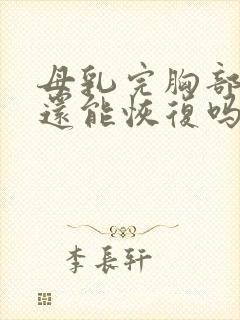 母乳完胸部
還能恢復吗
李長軒